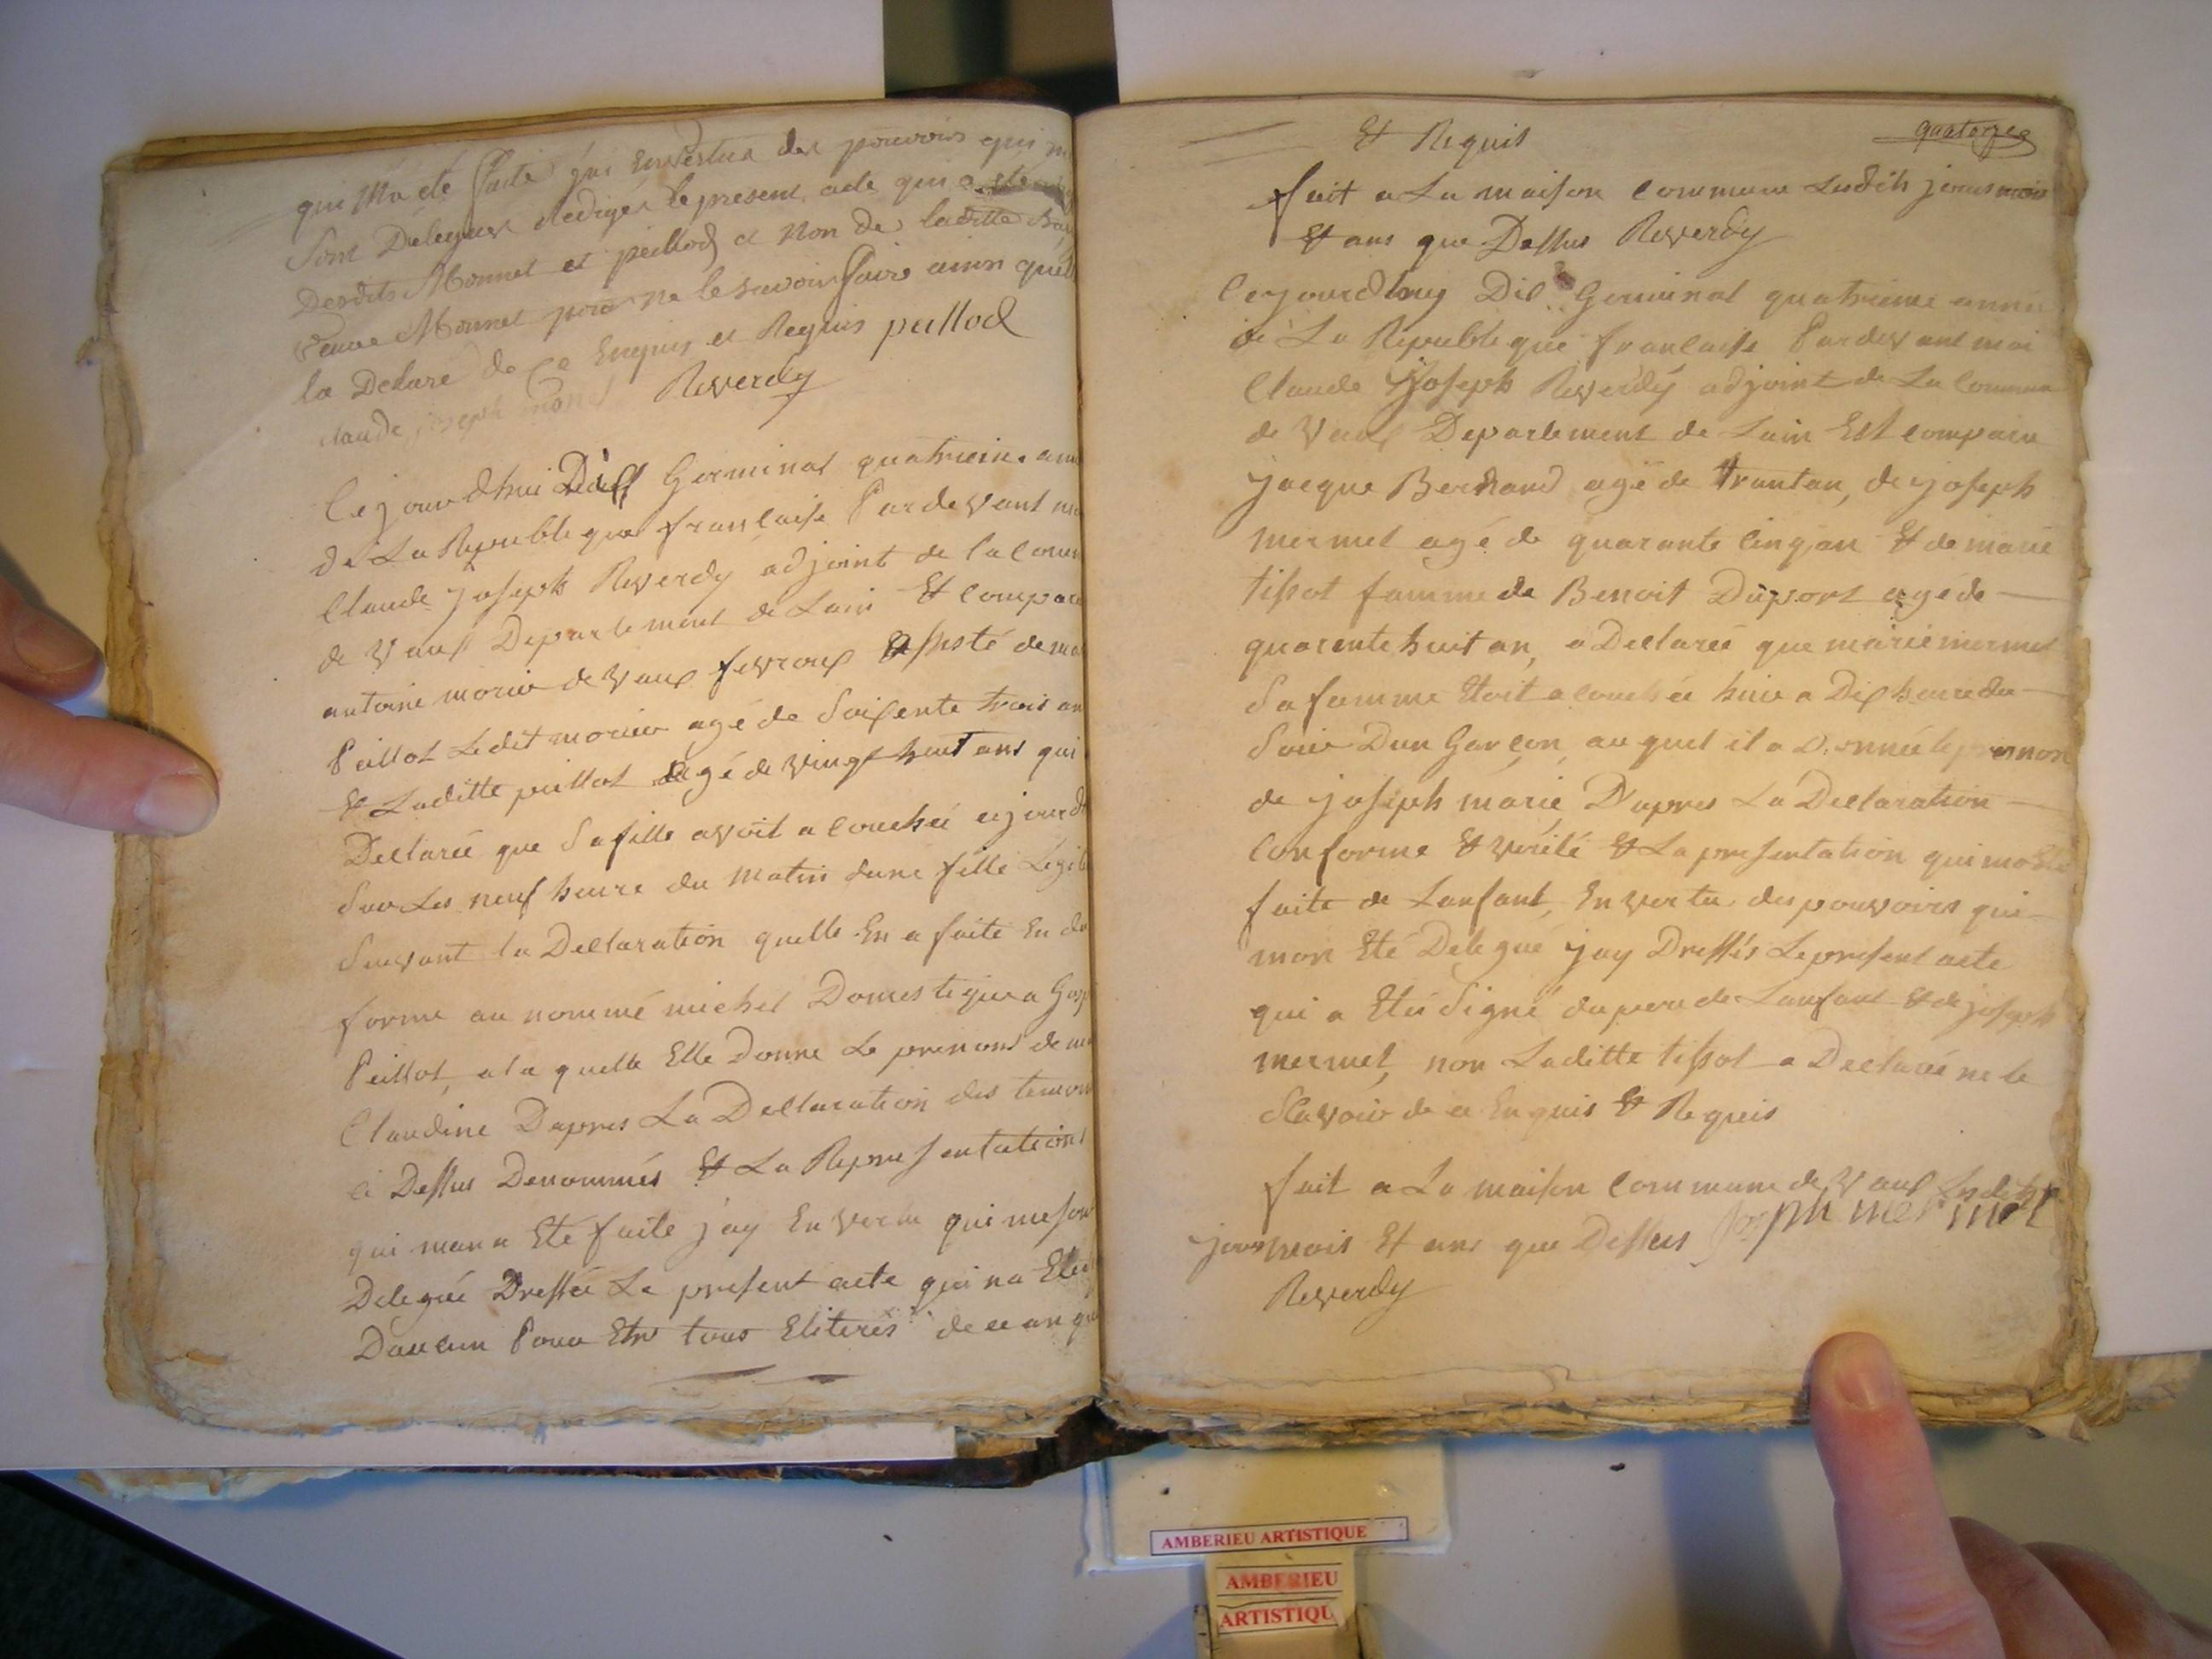 qui M'a eté faite j'ai En Vertus des pouvoirs qui m
Sont Delegues Redigés le present acte qui a ete
Desdits Monnet et peillod et Non de laditte
Veuve Monnet pour ne le savoir faire ainsi quel
la Declaré de Ce Enquis et Requis peillod
claude joseph monet Reverdy
Cejourdhui Dix Germinal quatrieme ann
de La Republique française Pardevant mo
Claude Joseph Reverdy adjoint de la Comm
de Vaux Departement de Lain Et Compar
antoine morier de Vaux fevroux assisté de ma
Peillot Ledit morier agé de Soixente trois an
& Laditte peillot agé de Vingt huit ans qui
Declareé que Sa fille avoit acouchéé cejourd
Sur Les neuf heure du Matin dune fille Legit
Suivant la Declaration quelle En a faite En du
forme au nommé michel Domestique a
Peillot, a la quelle Elle Donne Le prenons de ma
Claudine Dapres La Declaration des temoin
ci Dessus Denommés & La Representations
qui man a Eté faite j'ay En Vertu qui me son
Delegué Dresséé Le present acte qui na Eté
Daucun Pour Etre tous Eliterés de ce an qu
& Requis
quatorze
fait a La maison Commune Lesdits jours mois
& ans que Dessus Reverdy
Cejourdhuy Dix Germinal quatrieme année
de La Republique francaise Pardevant moi
Claude Joseph Reverdÿ adjoint de La Commune
de Vaux Departement de Lain Est comparu
jacque Bernand agé de trantan, de joseph
mermet agé de quarante cinq an & de marie
tissot famme de Benoit Duport agé de
quarente huit an, a Declareé que marie mermet
Sa famme Etoit acouchéé hier a Dix heure du
Soir Dun Garçon, au quel il a Donnéé le prenon
de joseph marie, D'apres La Declaration
Conforme & verité & La presentation qui ma Eté
faite de Lanfant, En vertu des pouvoirs qui
mon Eté Delegué jay Dressés Le present acte
qui a Eté Signé du pere de Lanfant & de joseph
mermet, non Laditte tissot a Declareé ne le
Savoir de ce Enquis & Requis
fait a La maison Commune de Vaux Lesdits
jours mois Et ans que Dessus joseph mermet
Reverdy
AMBERIEU ARTISTIQUE
AMBERIEU
ARTISTIQU